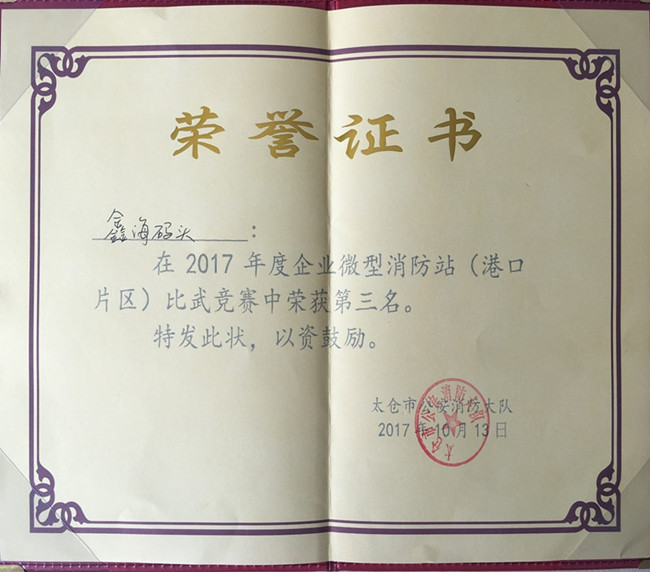 荣誉证书
鑫海码头：
在 2017 年度企业微型消防站（港口
片区）比武竞赛中荣获第三名。
特发此状，以资鼓励。
太仓市公安消防大队
2017 年 10 月 13 日
太仓市公安消防大队